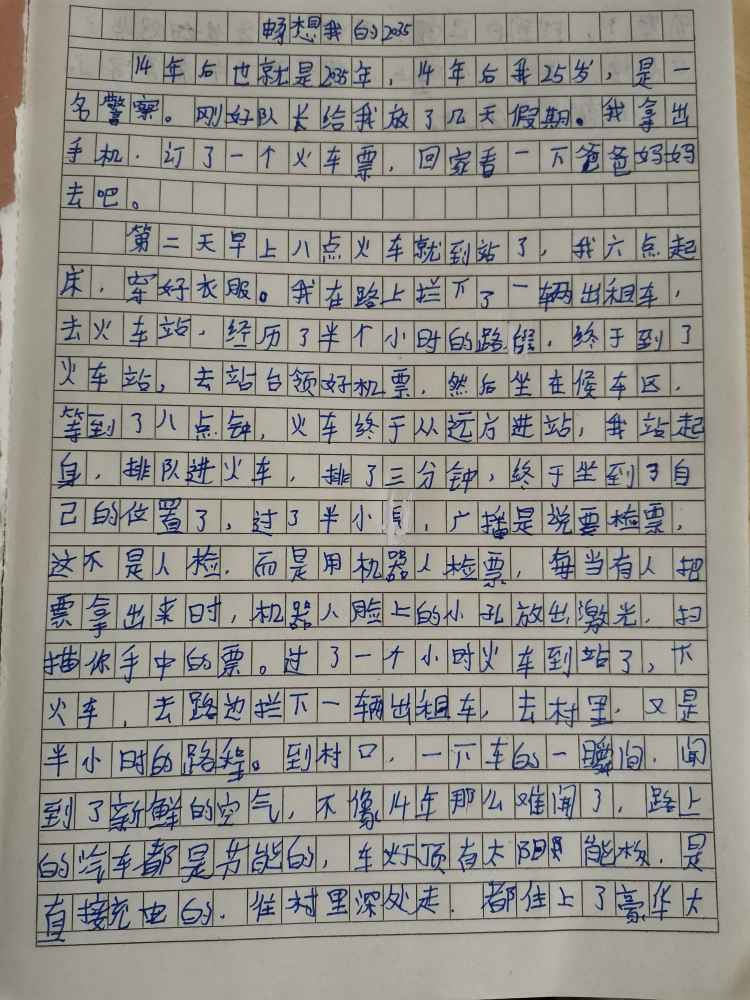 畅想我的2035
14年后也就是2035年，14年后我25岁，是一
名警察。刚好队长给我放了几天假期。我拿出
手机，订了一个火车票，回家看一下爸爸妈妈
去吧。
第二天早上八点火车就到站了，我六点起
床，穿好衣服。我在路上拦下了一辆出租车，
去火车站，经历了半个小时的路程，终于到了
火车站，去站台领好机票，然后坐在候车区，
等到了八点钟，火车终于从远方进站，我站起
身，排队进火车，排了三分钟，终于坐到了自
己的位置了，过了半小，广播是说要检票，
这不是人检，而是用机器人检票，每当有人把
票拿出来时，机器人脸上的小孔放出激光，扫
描你手中的票。过了一个小时火车到站了，下
火车，去路边拦下一辆出租车，去村里，又是
半小时的路程。到村口，一下车的一瞬间，闻
到了新鲜的空气，不像14年那么难闻了，路上
的汽车都是节能的，车顶有太阳能板，是
直接充电的，往村里深处走，都住上了豪华大